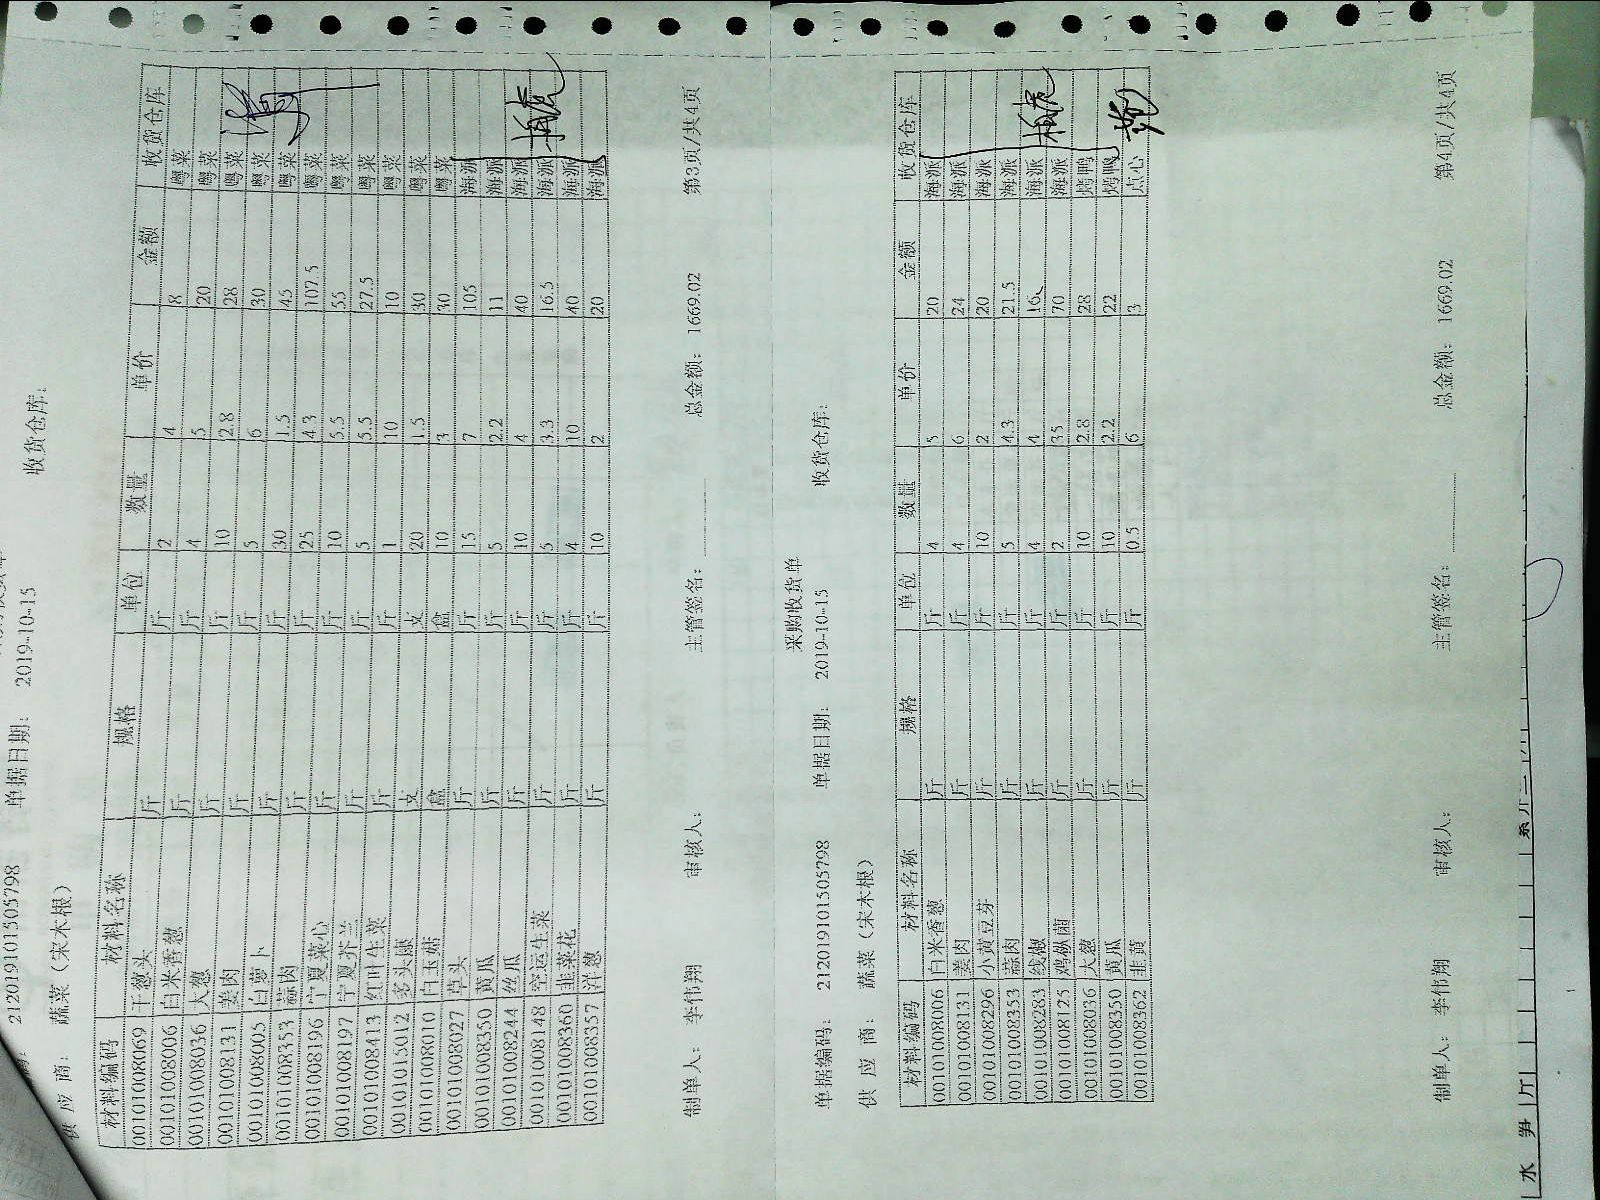 212019101505798 单据日期： 2019-10-15 收货仓库：
供 应 商： 蔬菜（宋木根）
材料编码 材料名称 规格 单位 数量 单价 金额 收货仓库
00101008069 干葱头 斤 斤 2 4 8 粤菜
00101008006 白米香葱 斤 斤 4 5 20 粤菜
00101008036 大葱 斤 斤 10 2.8 28 粤菜
00101008131 姜肉 斤 斤 5 6 30 粤菜
00101008005 白萝卜 斤 斤 30 1.5 45 粤菜
00101008353 蒜肉 斤 斤 25 4.3 107.5 粤菜
00101008196 宁夏菜心 斤 斤 10 5.5 55 粤菜
00101008197 宁夏芥兰 斤 斤 5 5.5 27.5 粤菜
00101008413 红叶生菜 斤 斤 1 10 10 粤菜
00101015012 多头康 支 支 20 1.5 30 粤菜
00101008010 白玉菇 盒 盒 10 3 30 粤菜
00101008027 草头 斤 斤 15 7 105 海派
00101008350 黄瓜 斤 斤 5 2.2 11 海派
00101008244 丝瓜 斤 斤 10 4 40 海派
00101008148 空运生菜 斤 斤 5 3.3 16.5 海派
00101008360 韭菜花 斤 斤 4 10 40 海派
00101008357 洋葱 斤 斤 10 2 20 海派
制单人： 李伟翔 审核人： 主管签名： 总金额： 1669.02 第3页/共4页
采购收货单
单据编码： 212019101505798 单据日期： 2019-10-15 收货仓库：
供 应 商： 蔬菜（宋木根）
材料编码 材料名称 规格 单位 数量 单价 金额 收货仓库
00101008006 白米香葱 斤 斤 4 5 20 海派
00101008131 姜肉 斤 斤 4 6 24 海派
00101008296 小黄豆芽 斤 斤 10 2 20 海派
00101008353 蒜肉 斤 斤 5 4.3 21.5 海派
00101008283 线椒 斤 斤 4 4 16 海派
00101008125 鸡枞菌 斤 斤 2 35 70 海派
00101008036 大葱 斤 斤 10 2.8 28 烤鸭
00101008350 黄瓜 斤 斤 10 2.2 22 烤鸭
00101008362 韭黄 斤 斤 0.5 6 3 点心
制单人： 李伟翔 审核人： 主管签名： 总金额： 1669.02 第4页/共4页
水 笋 斤